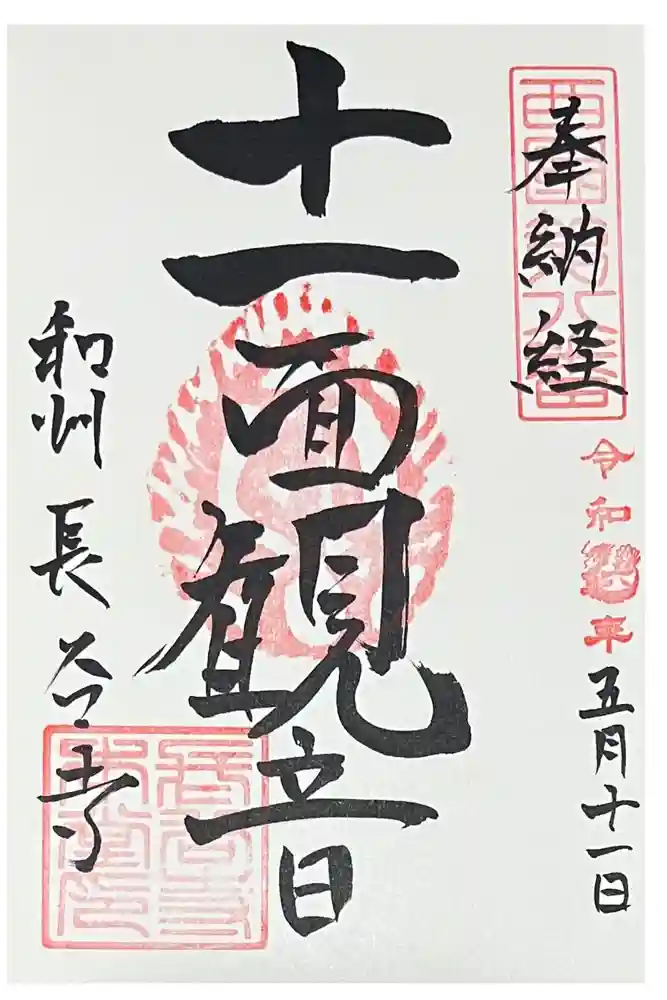 奉納経
令和
年
五月十一日
十一面観音
和州 長谷寺